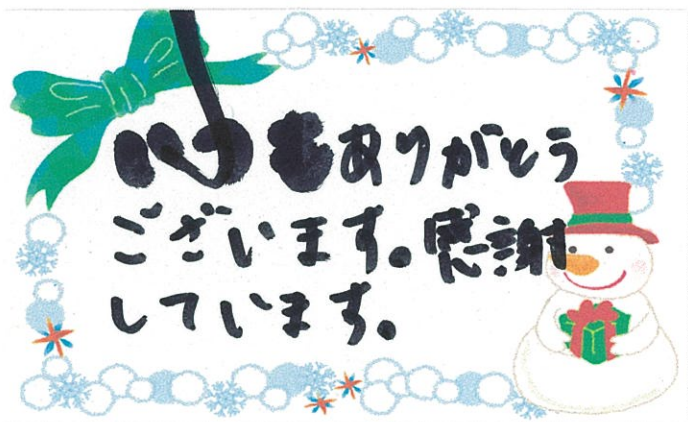 いつもありがとう
ございます。感謝
しています。